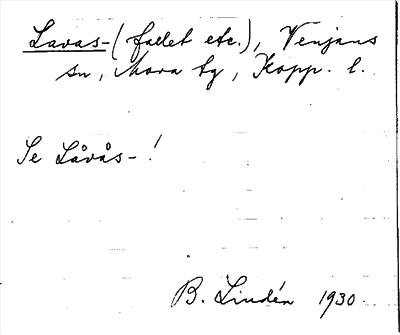 Lavas- (fallet etc.), Venjans
sn, Mora tg, Kopp. l.
Se Låvås- !
B. Lindén 1930.